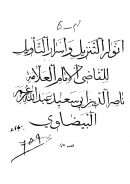 انوار التنزيل واسرار التأويل
للقاضي الامام العلامة
ناصر الدين ابي سعيد عبد الله
البيضاوي